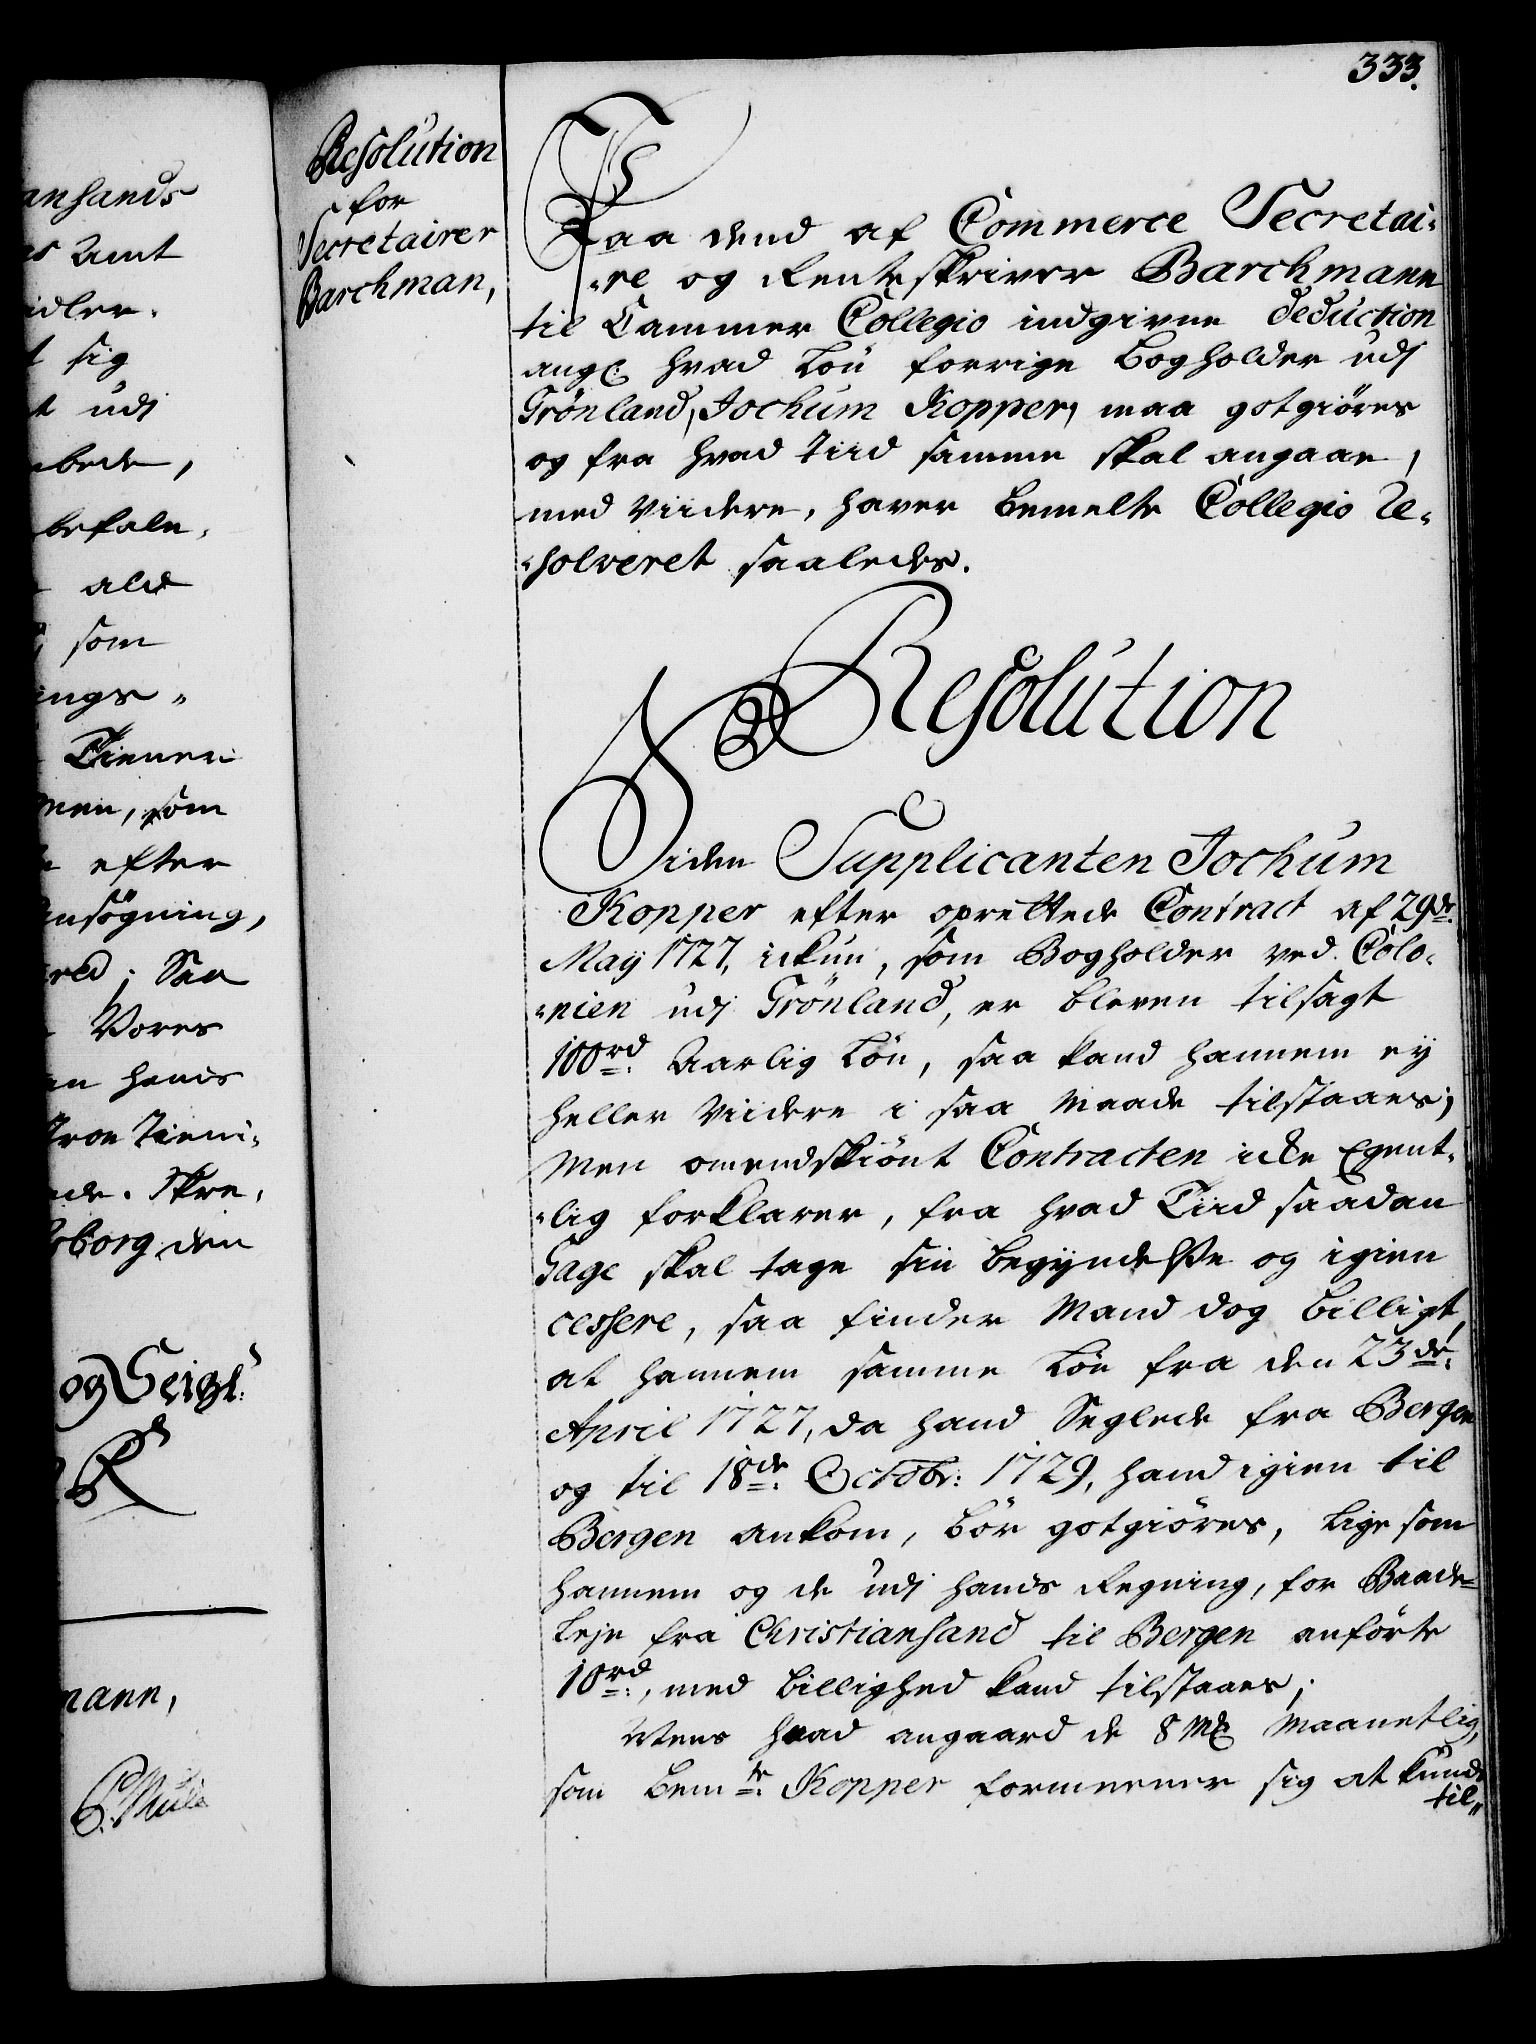 anhands
es Amt
idler.
t sig
t udi
ebede,
befale,
ald
som
ings
Tiener
men, som
efter
ansøgning,
red; Saa
Vores
en hands
Troe Tieni-
ede. Skre,
borg den
og Seigl:
R
mann,
333.
Resolution
for
Secretairer
Barchman,
Paa dend af Commerce Secretai-
-re og Renteskriver Barchmann
til Cammer Collegio indgivne deduction
ang: hvad Løn forrige Bogholder udj
Grönland, Jochum Kopper, maa gotgiöres
og fra hvad tiid samme skal angaae,
med viidere, haver bemelte Collegio re-
-holveret saaledes.
Resolution
Siden Supplicanten Jochum
Kopper efter oprettede Contract af 29de
Maij 1727, ickun, som Bogholder ved Colo-
-nien udj Grönland, er bleven tilsagt
100rd Aarlig Løn, saa kand hannem ey
heller viidere i saa Maade tilstaaes;
Men omendskiönt Contracten icke Egent-
-lig forklarer, fra hvad Tiid saadan
Gage skal tage sin begyndelse og igien
cessere, saa finder Mand dog billigt,
at hannem samme Løn fra den 23de
April 1727, da hand Seglede fra Bergen
og til 18de Octobr: 1729, hand igien til
Bergen ankom, bör gotgiöres, lige som
hannem og de udj hands Regning, for Baade-
Leje fra Christiansand til Bergen anförte
10rd, med billighed kand tilstaaes;
Mens hvad angaard de 8 Mk Maanetlig,
som bemte Kopper formeener sig at kunde
til"